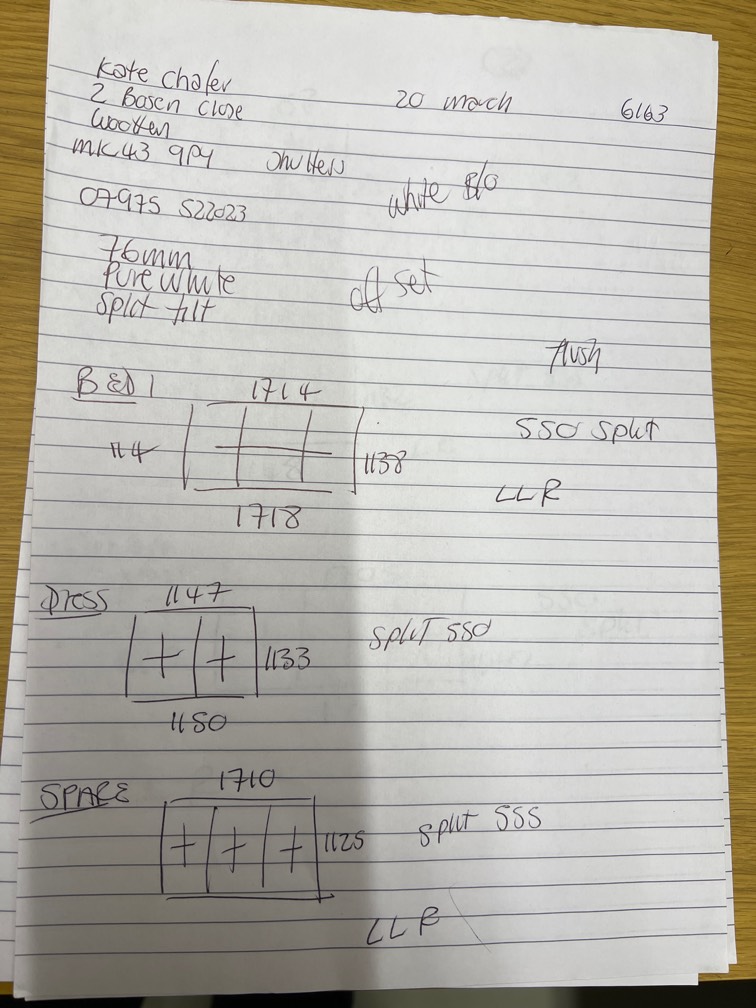 Kate Chafer
20 march
6163
2 Bosen Close
Wootten
MK43 9PY
shutters
white
07975 522023
76mm
Pure white
Split tilt
off set
flush
BED 1
1714
114
1138
SSO split
LLR
1718
Dress
1147
1133
split SSO
1150
SPARE
1710
1125
split SSS
LLR